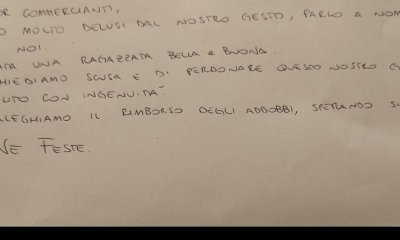 OR COMMERCIANTI,
O MOLTO DELUSI DAL NOSTRO GESTO, PARLO A NOM
NOI.
ATA UNA RAGAZZATA BELLA E BUONA.
HIEDIAMO SCUSA E DI PERDONARE QUESTO NOSTRO G
UTO CON INGENUITA'.
LLEGHIAMO IL RIMBORSO DEGLI ADDOBBI, SPERANDO SI
NE FESTE.